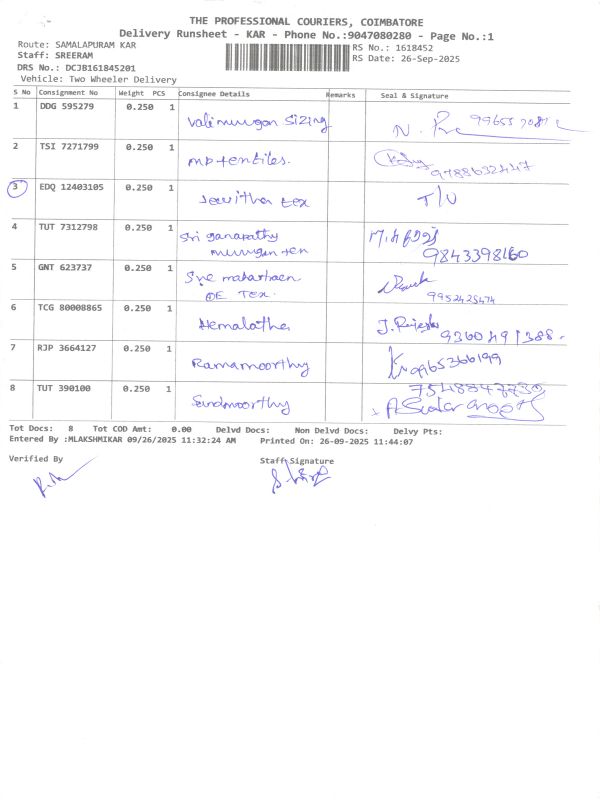 THE PROFESSIONAL COURIERS, COIMBATORE
Delivery Runsheet - KAR - Phone No.:9047080280 - Page No.:1
Route: SAMALAPURAM KAR
RS No.: 1618452
Staff: SREERAM
RS Date: 26-Sep-2025
DRS No.: DCJB161845201
Vehicle: Two Wheeler Delivery
S No Consignment No Weight PCS Consignee Details Remarks Seal & Signature
1 DDG 595279 0.250 1 Valimurugan Sizing
2 TSI 7271799 0.250 1 mp textiles. 9788632447
3 EDQ 12403105 0.250 1 tex T/U
4 TUT 7312798 0.250 1 Sri Ganapathy
murugan tex 9843398160
5 GNT 623737 0.250 1 Sre
OE Tex. 9952425474
6 TCG 80008865 0.250 1 Hemalatha J. Rajesh
9360491388.
7 RJP 3664127 0.250 1 Ramamoorthy 9965366199
8 TUT 390100 0.250 1 7548847730
Tot Docs: 8 Tot COD Amt: 0.00 Delvd Docs: Non Delvd Docs: Delvy Pts:
Entered By :MLAKSHMIKAR 09/26/2025 11:32:24 AM Printed On: 26-09-2025 11:44:07
Verified By Staff Signature